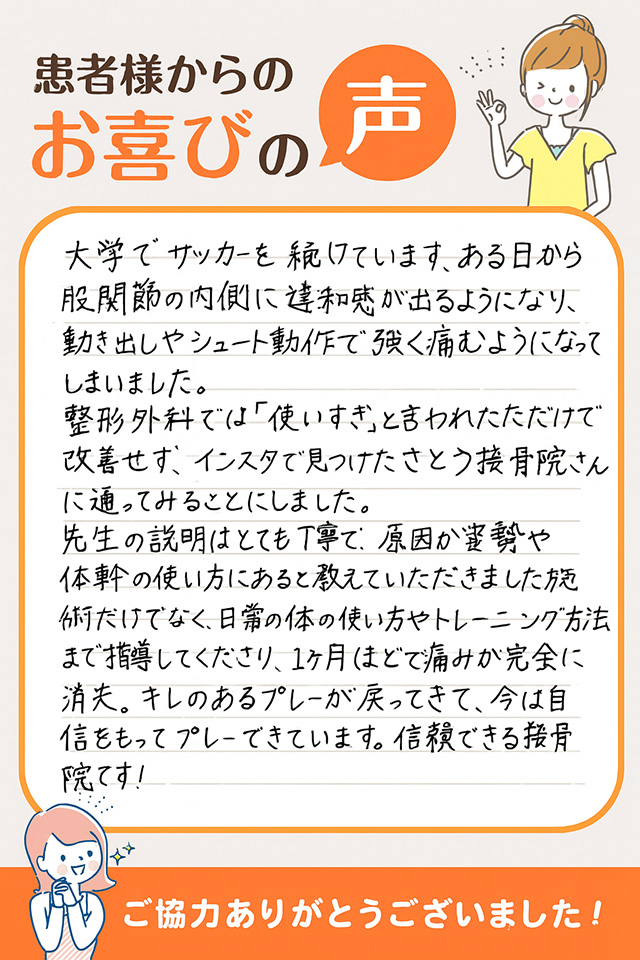 患者様からの
お喜びの声
大学でサッカーを続けています、ある日から
股関節の内側に違和感が出るようになり、
動き出しやシュート動作で強く痛むようになって
しまいました。
整形外科では「使いすぎ」と言われたただけで
改善せず、インスタで見つけたさとう接骨院さん
に通ってみることにしました。
先生の説明はとても丁寧で、原因が姿勢や
体幹の使い方にあると教えていただきました施
術だけでなく、日常の体の使い方やトレーニング方法
まで指導してくださり、1ヶ月ほどで痛みが完全に
消失。キレのあるプレーが戻ってきて、今は自
信をもってプレーできています。信頼できる接骨
院です!
ご協力ありがとうございました!